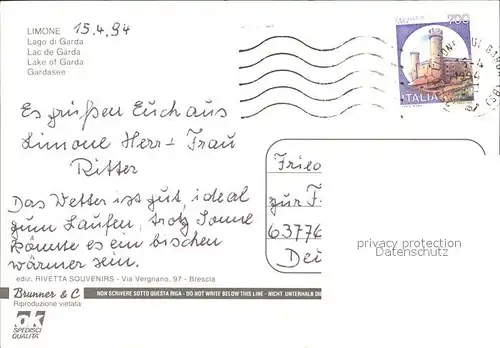 LIMONE 15.4.94
Lago di Garda
Lac de Garda
Lake of Garda
Gardasee
700
ITALIA
Es grüßen Euch aus
Limone Herr + Frau
Ritter
Das Wetter ist gut, ideal
zum Laufen, trotz Sonne
könnte es ein bischen
wärmer sein.
Fried
zur F
63776
Deu
privacy protection
Datenschutz
ediz. RIVETTA SOUVENIRS - Via Vergnano, 97 - Brescia
Brunner & C
NON SCRIVERE SOTTO QUESTA RIGA - DO NOT WRITE BELOW THIS LINE - NICHT UNTERHALB DI
Riproduzione vietata
OK
SPEDISCI
QUALITÀ